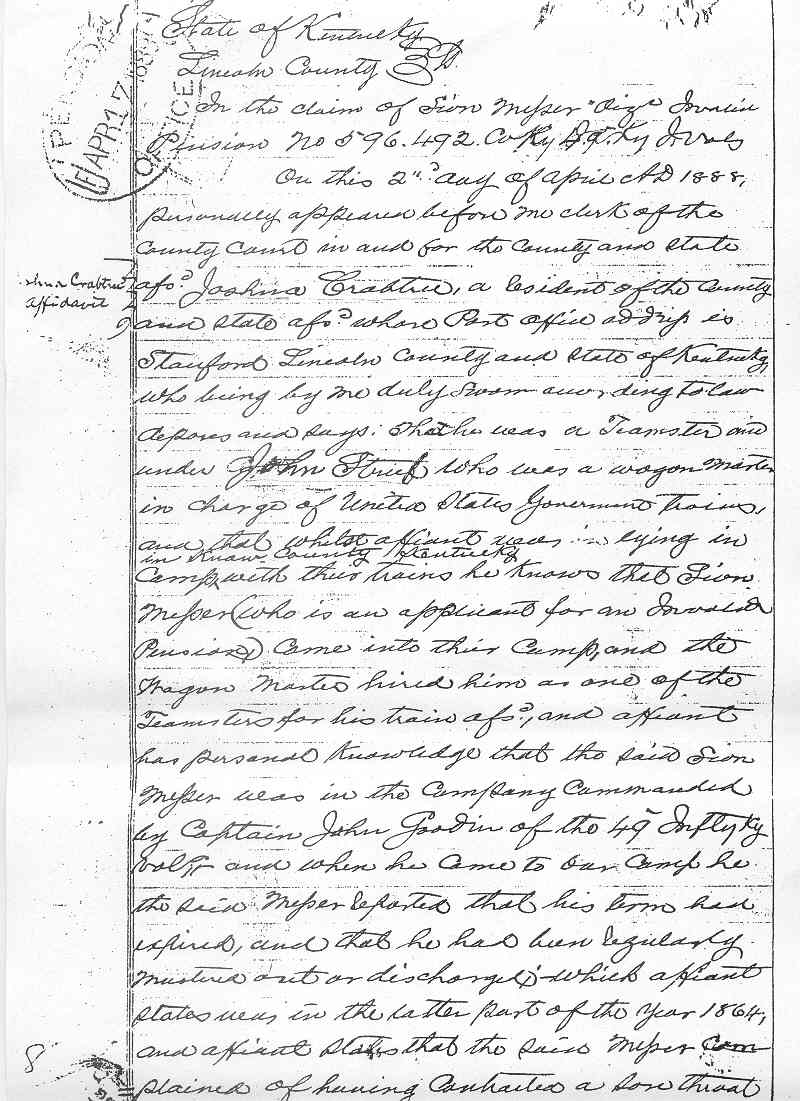 State of Kentucky
Lincoln County
In the claim of Sion Messer "Orig" Invalid
Pension No 596.492. Co Ky Vols
On this 2nd day of April AD 1888,
personally appeared before me clerk of the
County Court in and for the County and State
afsd Joshua Crabtree, a resident of the County
and State afsd whose Post office address is
Stanford Lincoln County and State of Kentucky,
who being by me duly sworn according to law
deposes and says: that he was a Teamster
under John who was a wagon master
in charge of United States Goverment trains,
and that whilst affiant was lying in
in Knox County Kentucky
Camp with their trains he knows that Sion
Messer (who is an applicant for an Invalid
Pension) Came into their Camp, and the
Wagon Master hired him as one of the
Teamsters for his train afsd, and affiant
has personal knowledge that the said Sion
Messer was in the Company Commanded
by Captain John Goodin of the 49 Inftry Ky
and when he Came to our Camp he
the said Messer reported that his term had
expired, and that he had been regularly
mustered out or discharged which affiant
states was in the latter part of the year 1864,
and affiant states that the said Messer Com
plained of having Contracted a sore throat
Crabtree
affidavit
PENSION
APR 17
OFFICE
8